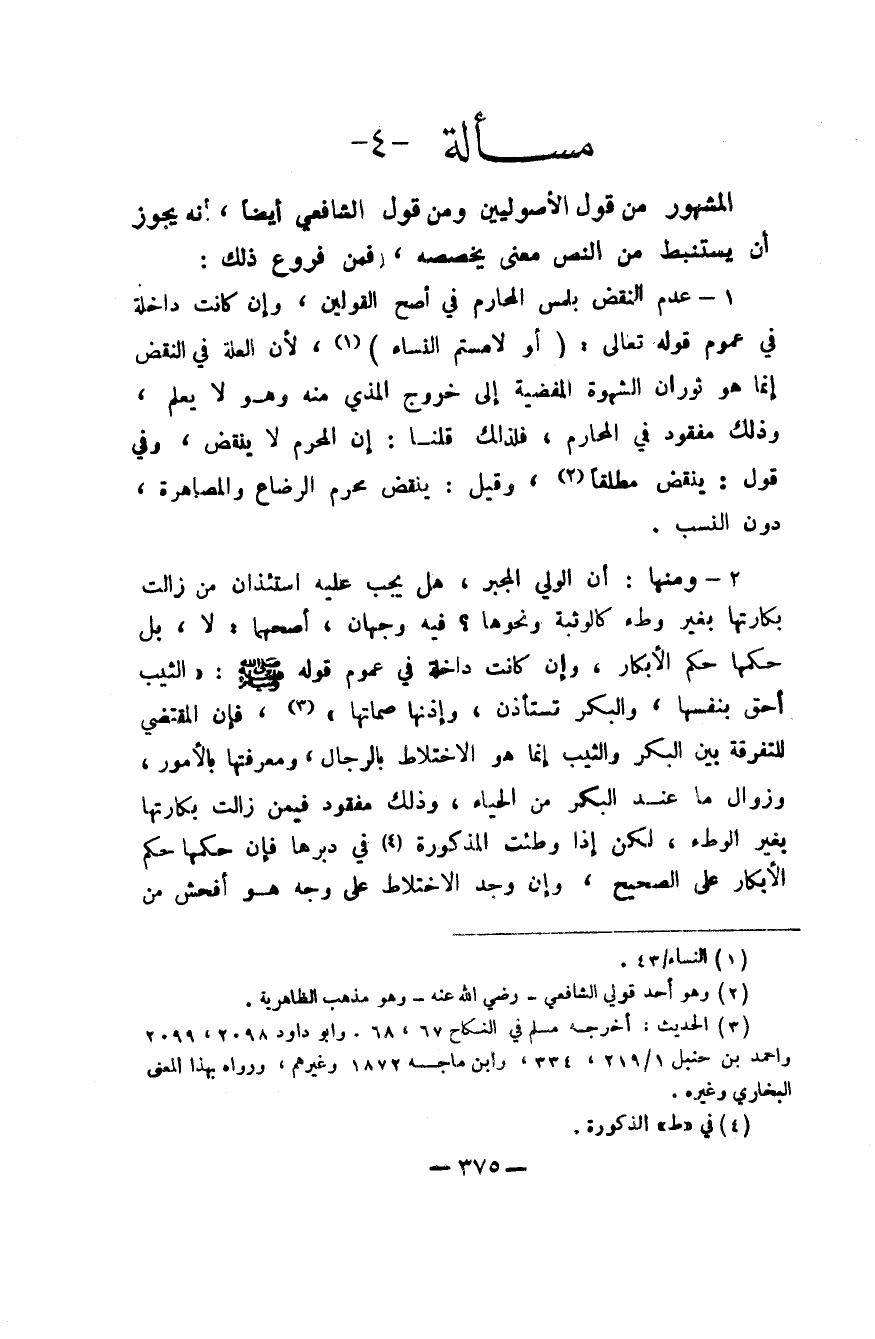 مسألة -٤-
المشهور من قول الأصوليين ومن قول الشافعي أيضاً ، أنه يجوز
أن يستنبط من النص معنى يخصصه ، فمن فروع ذلك :
١ – عدم النقض بلمس المحارم في أصح القولين ، وإن كانت داخلة
في عموم قوله تعالى : ( أو لامستم النساء ) (١) ، لأن العلة في النقض
إنما هو ثوران الشهوة المفضية إلى خروج المذي منه وهو لا يعلم ،
وذلك مفقود في المحارم ، فلذلك قلنا : إن المحرم لا ينقض ، وفي
قول : ينقض مطلقاً (٢) ، وقيل : ينقض محرم الرضاع والمصاهرة ،
دون النسب .
٢ – ومنها : أن الولي المجبر ، هل يجب عليه استئذان من زالت
بكارتها بغير وطء كالوثبة ونحوها ؟ فيه وجهان ، أصحهما : لا ، بل
حكمها حكم الأبكار ، وإن كانت داخلة في عموم قوله ﷺ : « الثيب
أحق بنفسها ، والبكر تستأذن ، وإذنها صماتها » (٣) ، فإن المقتضي
للتفرقة بين البكر والثيب إنما هو الاختلاط بالرجال ، ومعرفتها بالأمور ،
وزوال ما عند البكر من الحياء ، وذلك مفقود فيمن زالت بكارتها
بغير الوطء ، لكن إذا وطئت المذكورة (٤) في دبرها فإن حكمها حكم
الأبكار على الصحيح ، وإن وجد الاختلاط على وجه هو أفحش من
(١) النساء/٤٣ .
(٢) وهو أحد قولي الشافعي – رضي الله عنه – وهو مذهب الظاهرية .
(٣) الحديث : أخرجه مسلم في النكاح ٦٧ ، ٦٨ . وابو داود ٢٠٩٨ ، ٢٠٩٩
واحمد بن حنبل ٢١٩/١ ، ٣٣٤ ، وابن ماجه ١٨٧٢ وغيرهم ، ورواه بهذا المعنى
البخاري وغيره .
(٤) في «ط» الذكورة .
– ٣٧٥ –